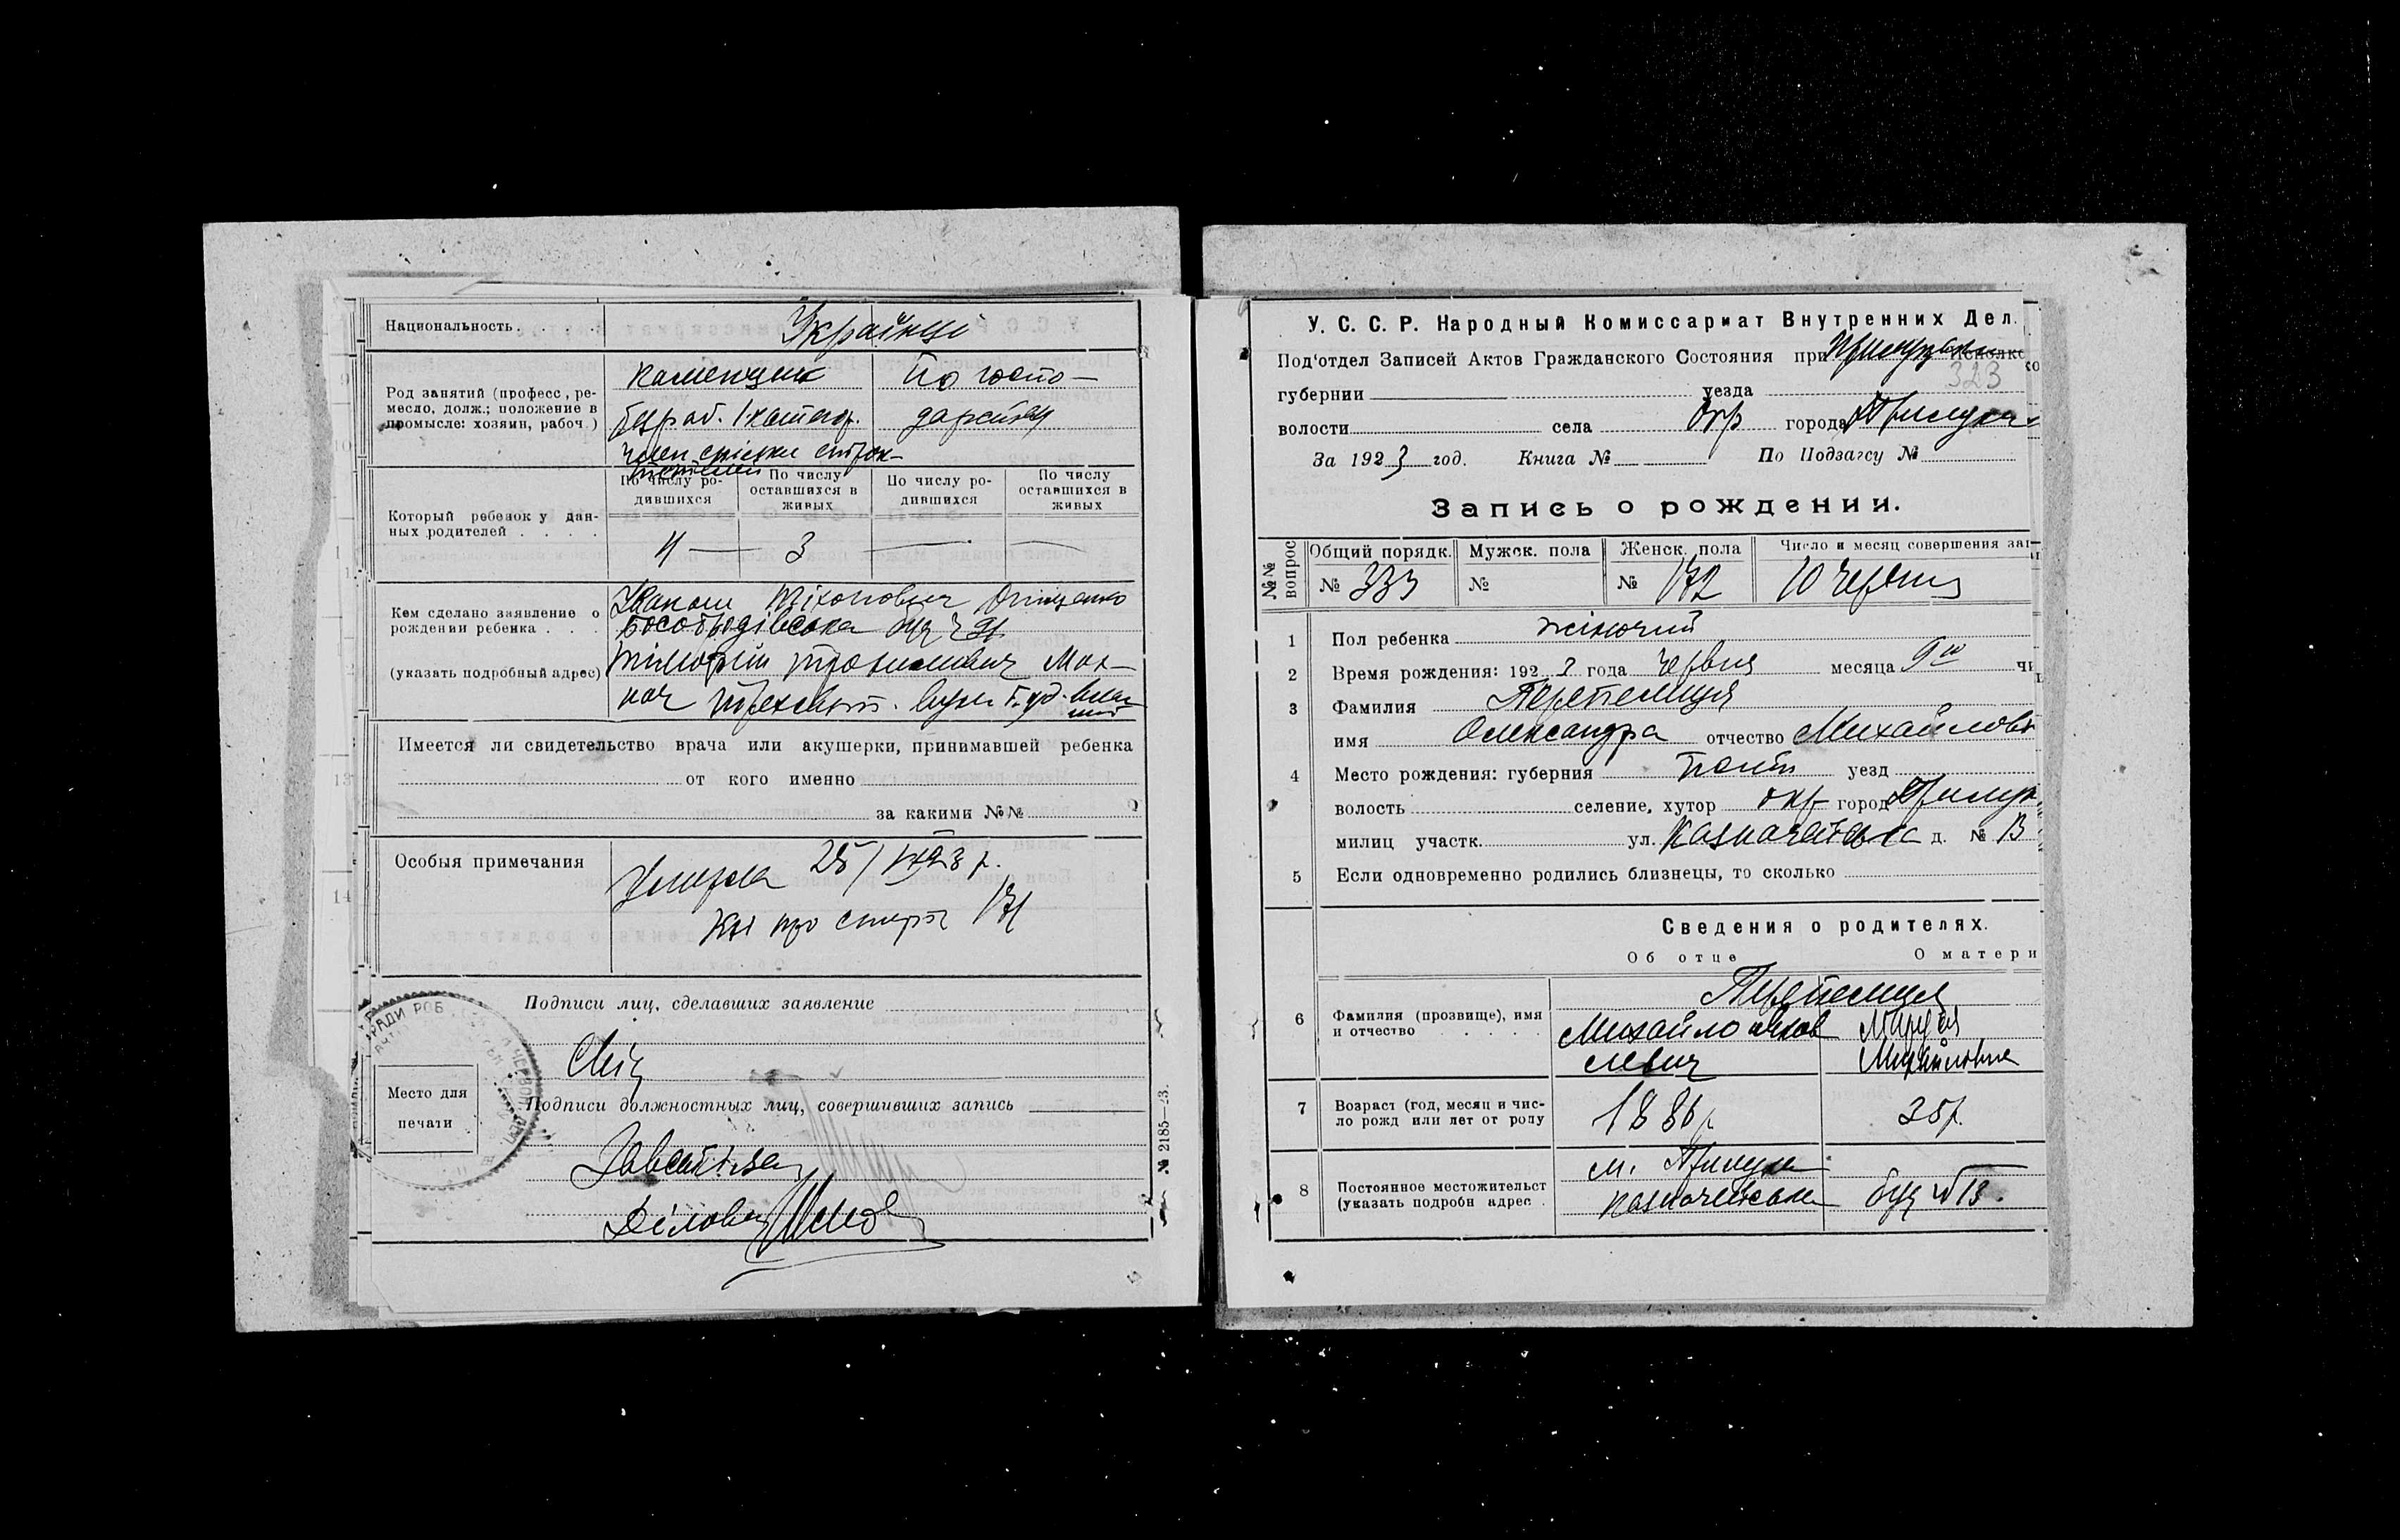 Национальность.
Українці
Род занятий (професс, ре-
месло, долж.; положение в
промысле: хозяин, рабоч.)
Каменщик
безраб. I категор.
член спілки
По госпо-
дарству
Который ребенок у дан-
ных родителей . . . .
По числу ро-
дившихся
По числу
оставшихся в
живых
По числу ро-
дившихся
По числу
оставшихся в
живых
4 — 3 — —
Кем сделано заявление о
рождении ребенка . . .
(указать подробный адрес)
Тіхонович Онищенко
буд ч 91
Трохимович
Имеется ли свидетельство врача или акушерки, принимавшей ребенка
от кого именно
за какими №№
Особыя примечания
Умерла 25/ 1923 р.
Кн про смерть 171
Подписи лиц, сделавших заявление
Подписи должностных лиц, совершивших запись
Место для
печати
Завсаб
Діловод
№ 2185—23.
У. С. С. Р. Народный Комиссариат Внутренних Дел.
Под'отдел Записей Актов Гражданского Состояния при Прилуцькім Исполко
323
губернии уезда
волости села Окр города Прилуки
За 1923 год. Книга № По Подзагсу №
Запись о рождении.
№№ вопрос
Общий порядк. Мужск. пола Женск. пола Число и месяц совершения зап
№ 333 № № 172 10 Червня
1 Пол ребенка жіночий
2 Время рождения: 1923 года Червня месяца 9го чи
3 Фамилия Перепелиця
имя Олександра отчество Михайловн
4 Место рождения: губерния Полт уезд
волость селение, хутор окр город Прилук
милиц участк. ул. Казначейська д. № 13
5 Если одновременно родились близнецы, то сколько
Сведения о родителях.
Об отце О матери
6 Фамилия (прозвище), имя
и отчество . . . . .
Перепелиця
Михайло Яков
левич
Марія
Михайловна
7 Возраст (год, месяц и чис-
ло рожд или лет от роду
1886 р. 35 р.
8 Постоянное местожительст
(указать подробн адрес .
м. Прилуки
Казначейська буд №13.